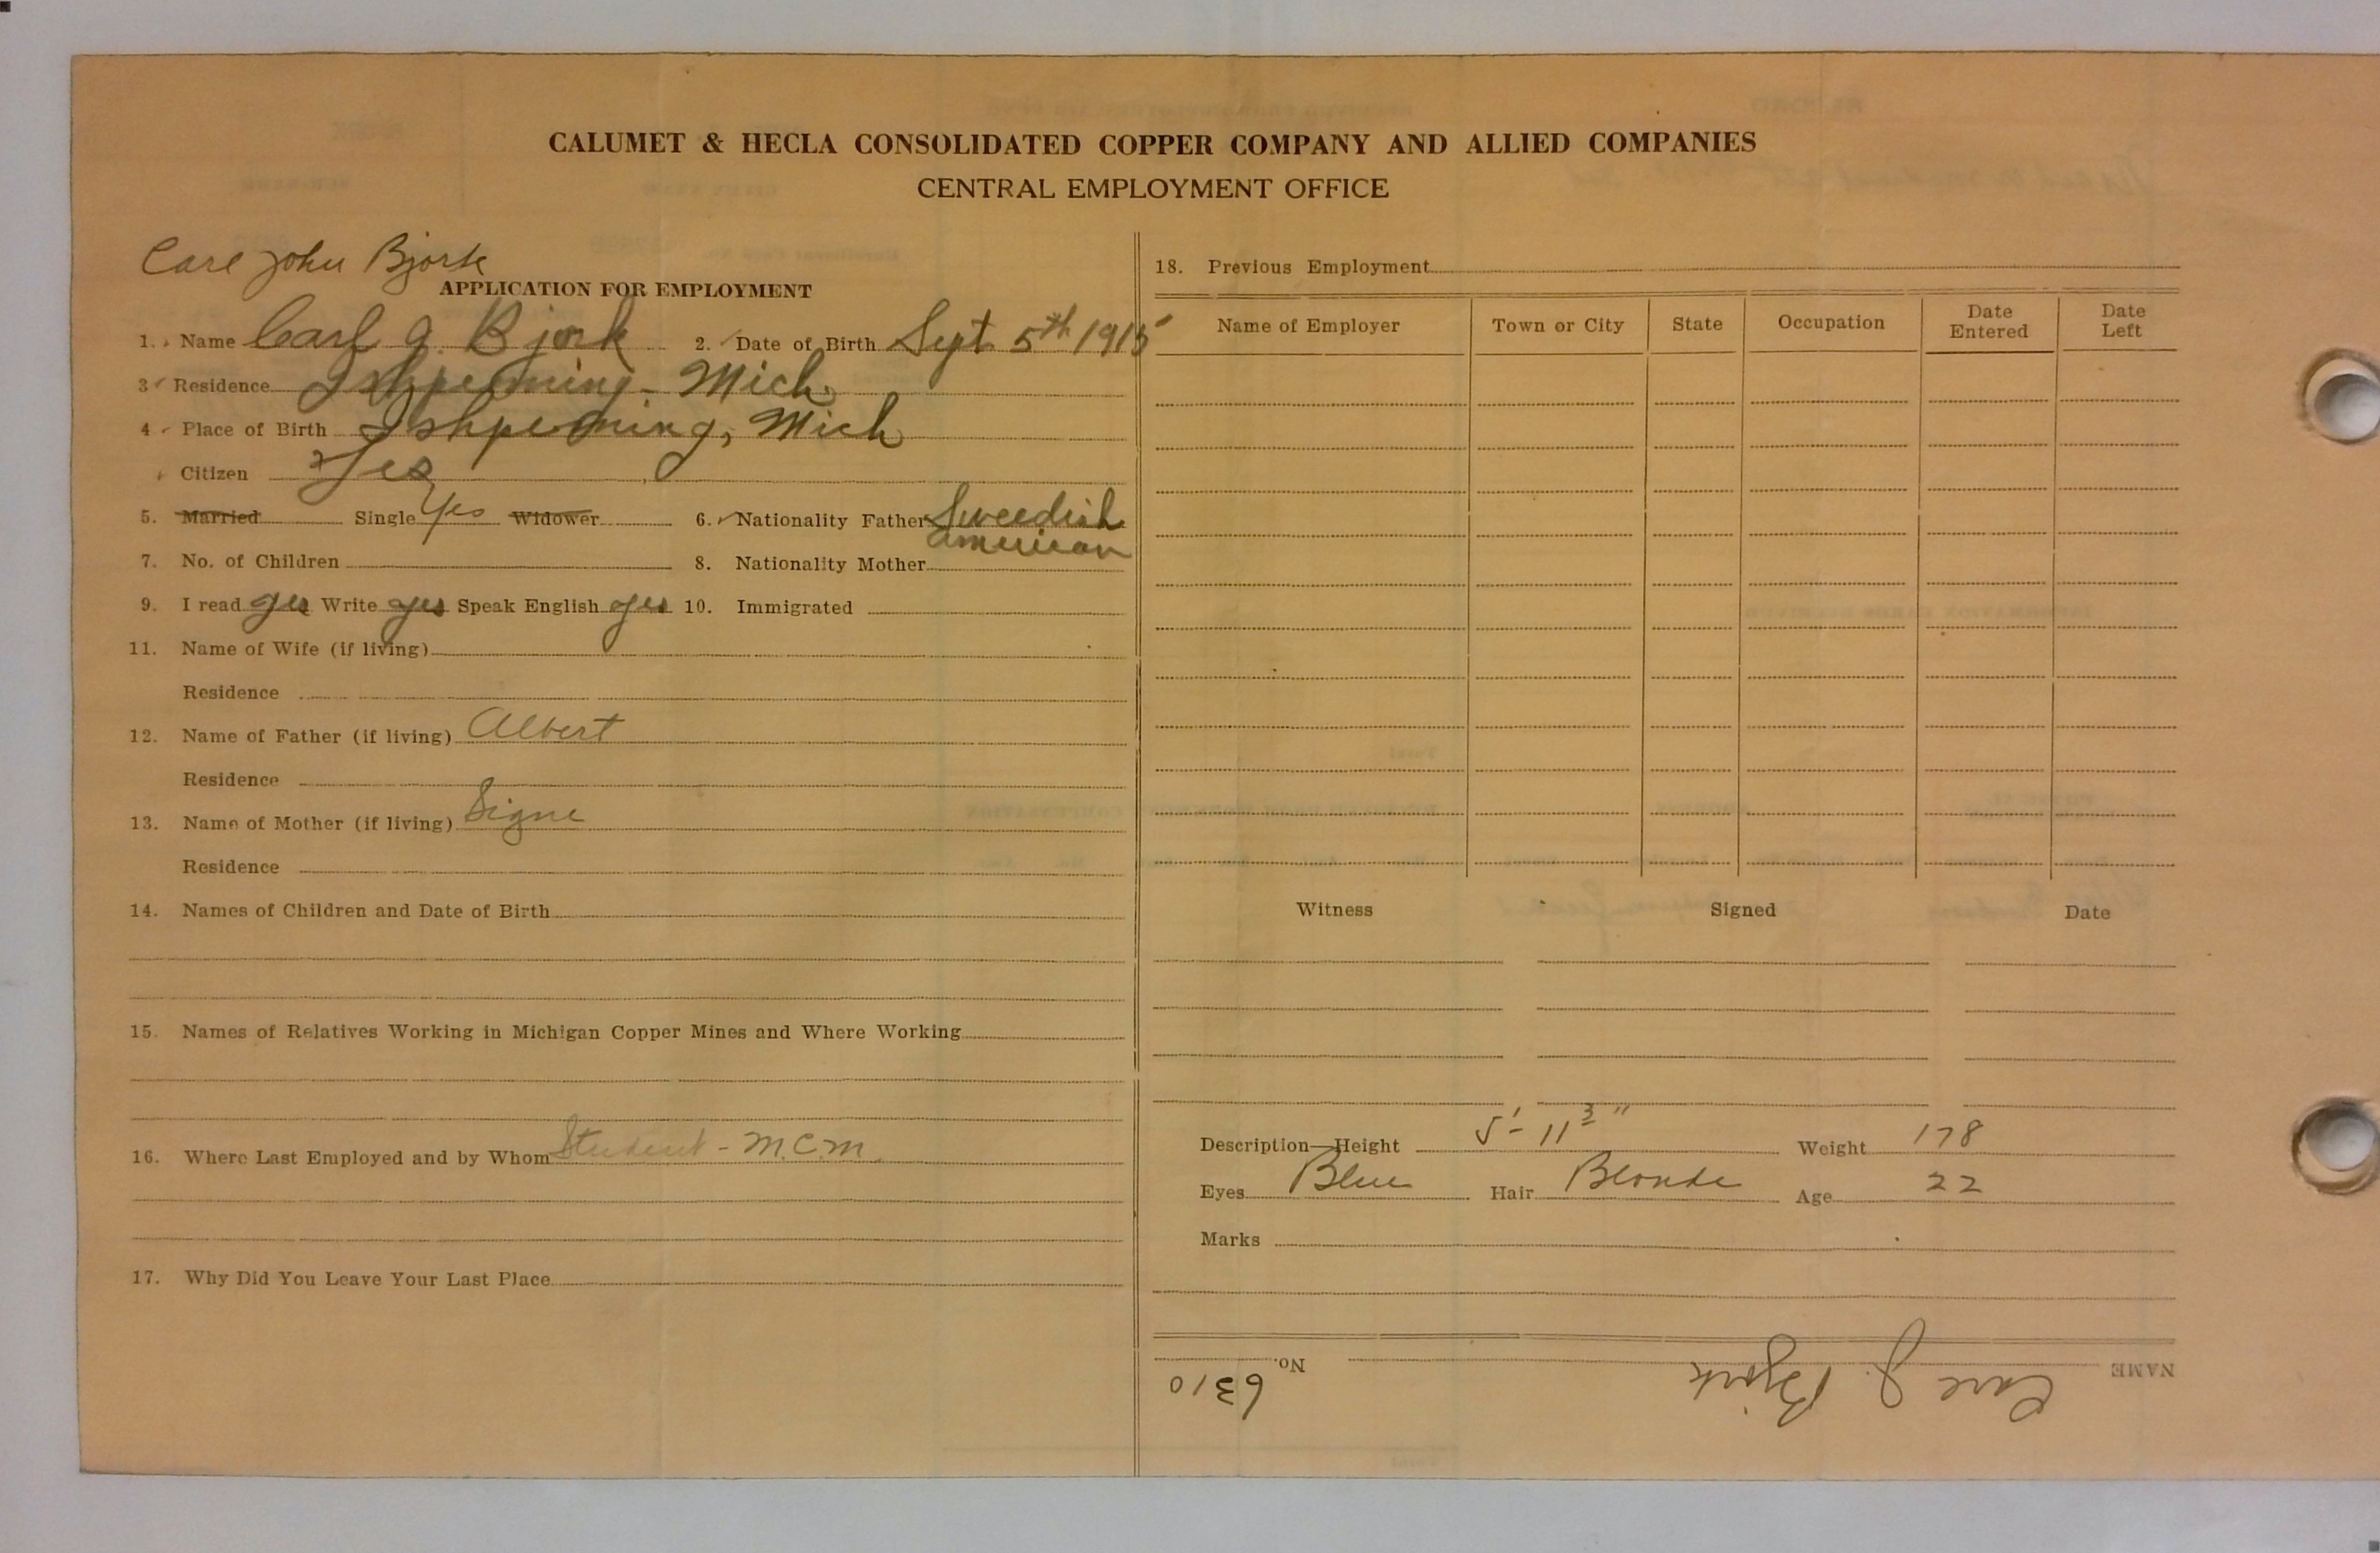 CALUMET & HECLA CONSOLIDATED COPPER COMPANY AND ALLIED COMPANIES
CENTRAL EMPLOYMENT OFFICE
Carl John Bjork
APPLICATION FOR EMPLOYMENT
1. Name Carl J. Bjork 2. Date of Birth Sept. 5th 1915
3 Residence Ishpeming - Mich.
4 Place of Birth Ishpeming, Mich
Citizen Yes
5. Married Single Yes Widower 6. Nationality Father Sweedish
american
7. No. of Children 8. Nationality Mother
9. I read yes Write yes Speak English yes 10. Immigrated
11. Name of Wife (if living)
Residence
12. Name of Father (if living) Albert
Residence
13. Name of Mother (if living) Signe
Residence
14. Names of Children and Date of Birth
15. Names of Relatives Working in Michigan Copper Mines and Where Working
16. Where Last Employed and by Whom Student - M.C.M.
17. Why Did You Leave Your Last Place
18. Previous Employment
Name of Employer Town or City State Occupation Date Entered Date Left
Witness Signed Date
Description—Height 5'- 11 3/" Weight 178
Eyes Blue Hair Blonde Age 22
Marks
NAME Carl J. Bjork No. 6310